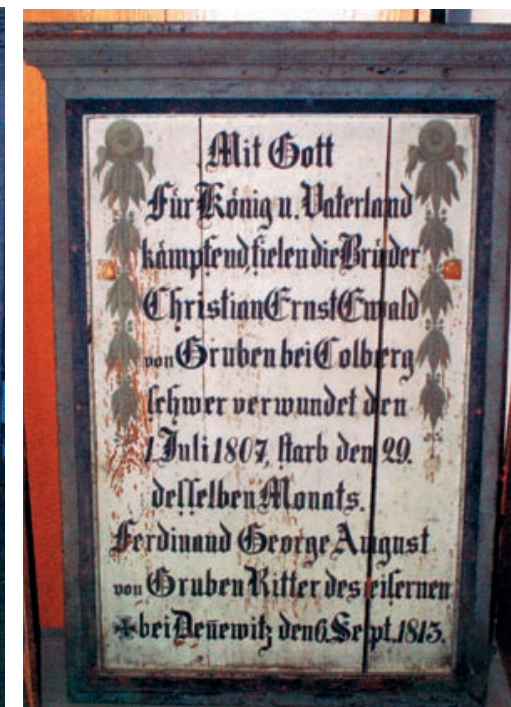 Mit Gott
Für König u. Vaterland
kämpfend, fielen die Brüder
Christian Ernst Ewald
von Gruben bei Colberg
schwer verwundet den
1 Juli 1807, starb den 29.
desselben Monats.
Ferdinand George August
von Gruben Ritter des eisernen
✠ bei Deñewitz den 6. Sept. 1813.